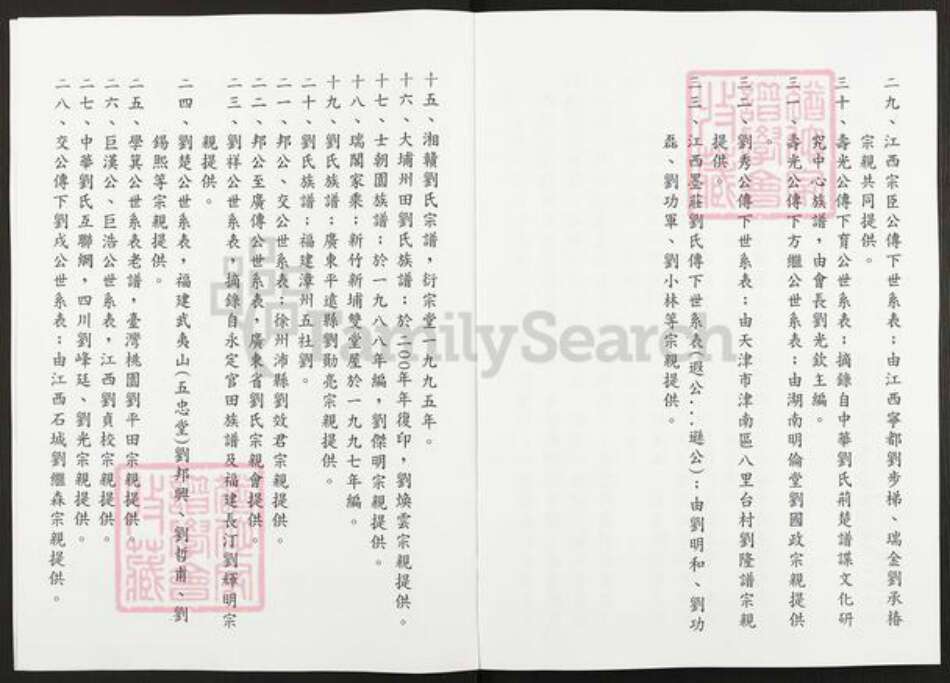 十五、湘贛劉氏宗譜，衍宗堂一九九五年。
十六、大埔州田劉氏族譜；於二000年年復印，劉煥雲宗親提供。
十七、士朝園族譜；於一九八八年編，劉傑明宗親提供。
十八、瑞閣家乘；新竹新埔雙堂屋於一九九七年編。
十九、劉氏族譜；廣東平遠縣劉勛亮宗親提供。
二十、劉氏族譜；福建漳州五社劉。
二一、邦公、交公世系表；徐州沛縣劉效君宗親提供。
二二、邦公至廣傳公世系表，廣東省劉氏宗親會提供。
二三、劉祥公世系表，摘錄自永定官田族譜及福建長汀劉輝明宗
親提供。
二四、劉楚公世系表，福建武夷山(五忠堂)劉邦興、劉哲甫、劉
錫熙等宗親提供。
二五、學箕公世系表老譜，臺灣桃園劉平田宗親提供。
二六、巨漢公、巨浩公世系表，江西劉貞校宗親提供。
二七、中華劉氏互聯網，四川劉峰廷、劉光宗親提供。
二八、交公傳下劉戍公世系表；由江西石城劉繼森宗親提供。
二九、江西宗臣公傳下世系表；由江西寧都劉步梯、瑞金劉承椿
宗親共同提供。
三十、壽光公傳下育公世系表；摘錄自中華劉氏荊楚譜諜文化研
究中心族譜，由會長劉光欽主編。
三一、壽光公傳下方繼公世系表；由湖南明倫堂劉國政宗親提供
。
三二、劉秀公傳下世系表；由天津市津南區八里台村劉隆譜宗親
提供。
三三、江西墨莊劉氏傳下世系表(遐公...遜公)；由劉明和、劉功
磊、劉功軍、劉小林等宗親提供。
FamilySearch